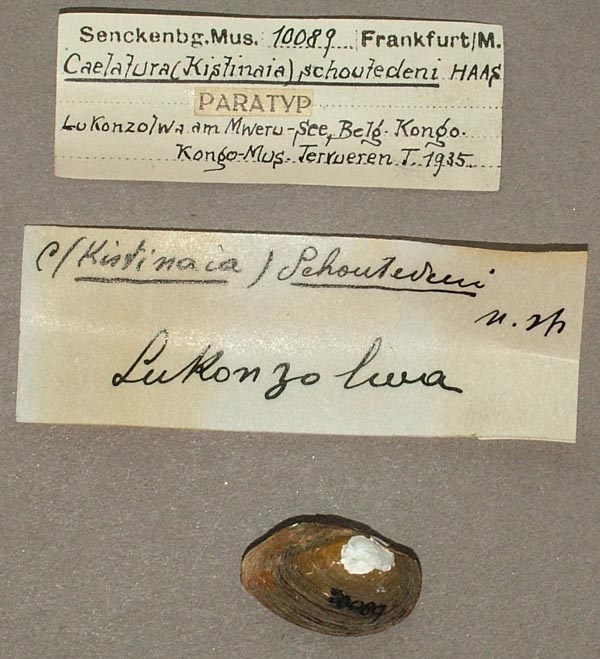 Senckenbg.Mus. 10089 Frankfurt/M.
Caelatura (Kistinaia) schoutedeni HAAS
PARATYP
Lukonzolwa am Mweru-See, Belg. Kongo.
Kongo-Mus. Tervueren T. 1935.
C/(Kistinaia) Schoutedeni
n. sp
Lukonzolwa
10089